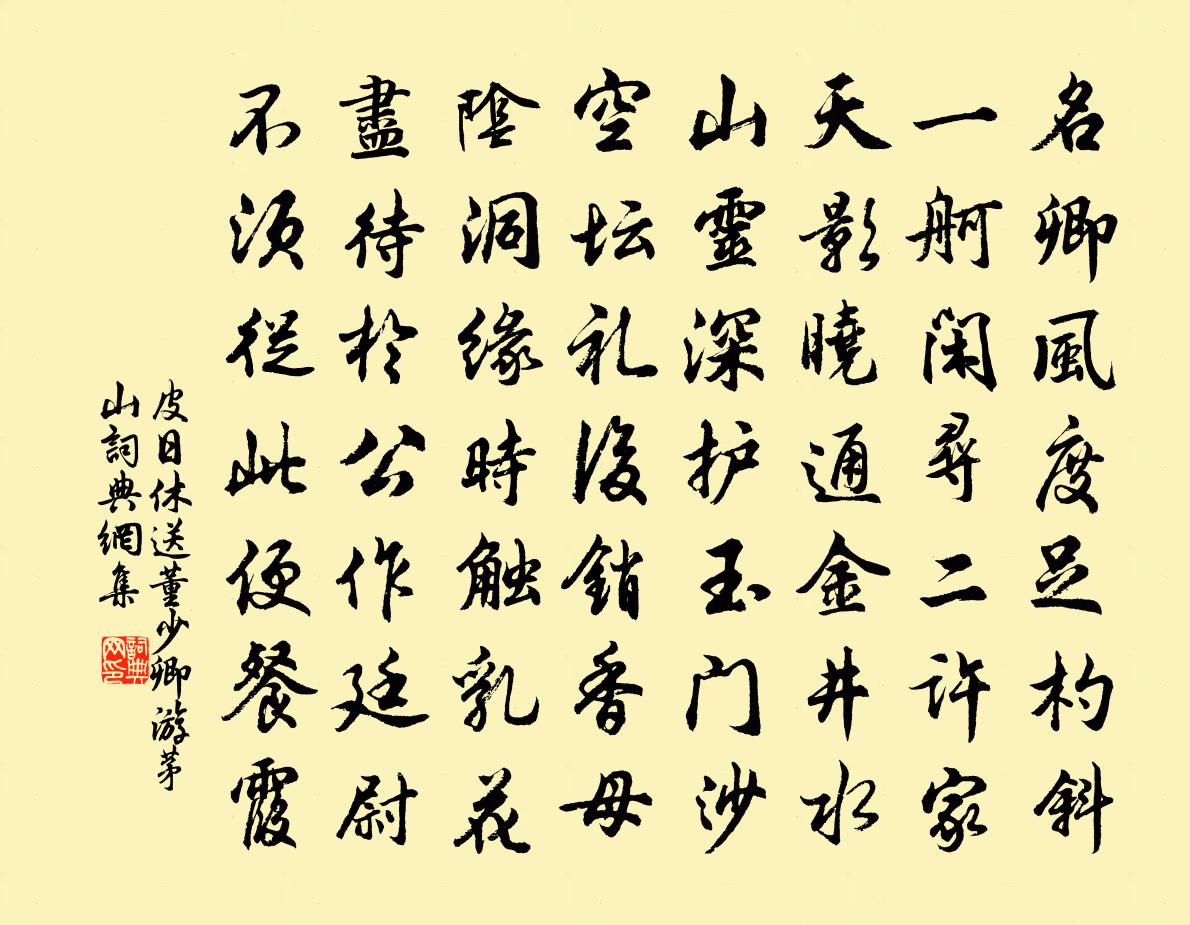 名卿風度足杓斜
一舸閑尋二许家
天影曉通金井水
山靈深护玉门沙
空坛礼後銷香母
陰洞緣時触乳花
盡待於公作廷尉
不須從此便餐霞
皮日休送董少卿游茅
山詞典網集
詞典
网印